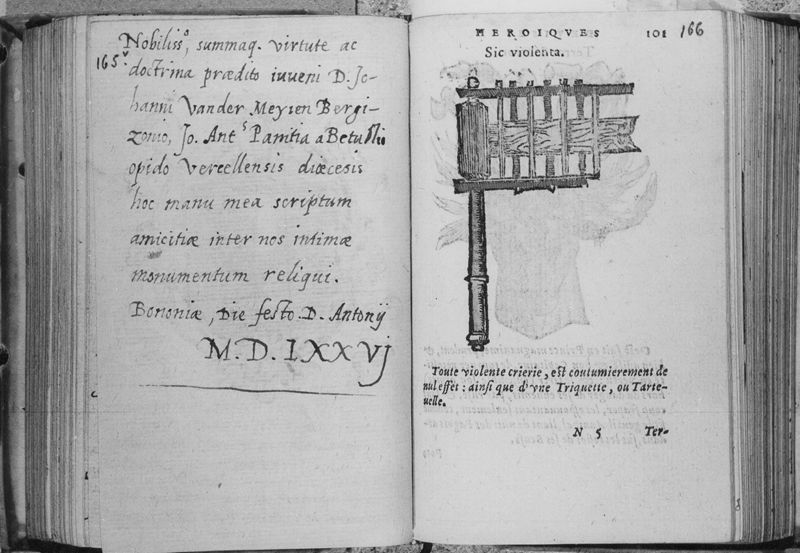 165v.
Nobiliss°, summaq. virtute ac
doctrina prædito iuveni D. Jo-
hanni Vander Meyien Bergi-
zonio, Jo. Antˢ Panitia a
opido Vercellensis diœcesis
hoc manu mea scriptum
amicitiæ inter nos intimæ
monumentum reliqui.
Bononiæ, Die festo D. Antonij
M.D.LXXVJ
HEROIQVES 101 166
Sic violenta.
Toute violente crierie, est coutumierement de
nul effet: ainsi que d'vne Triquette, ou Tarte-
uelle.
N 5 Ter-